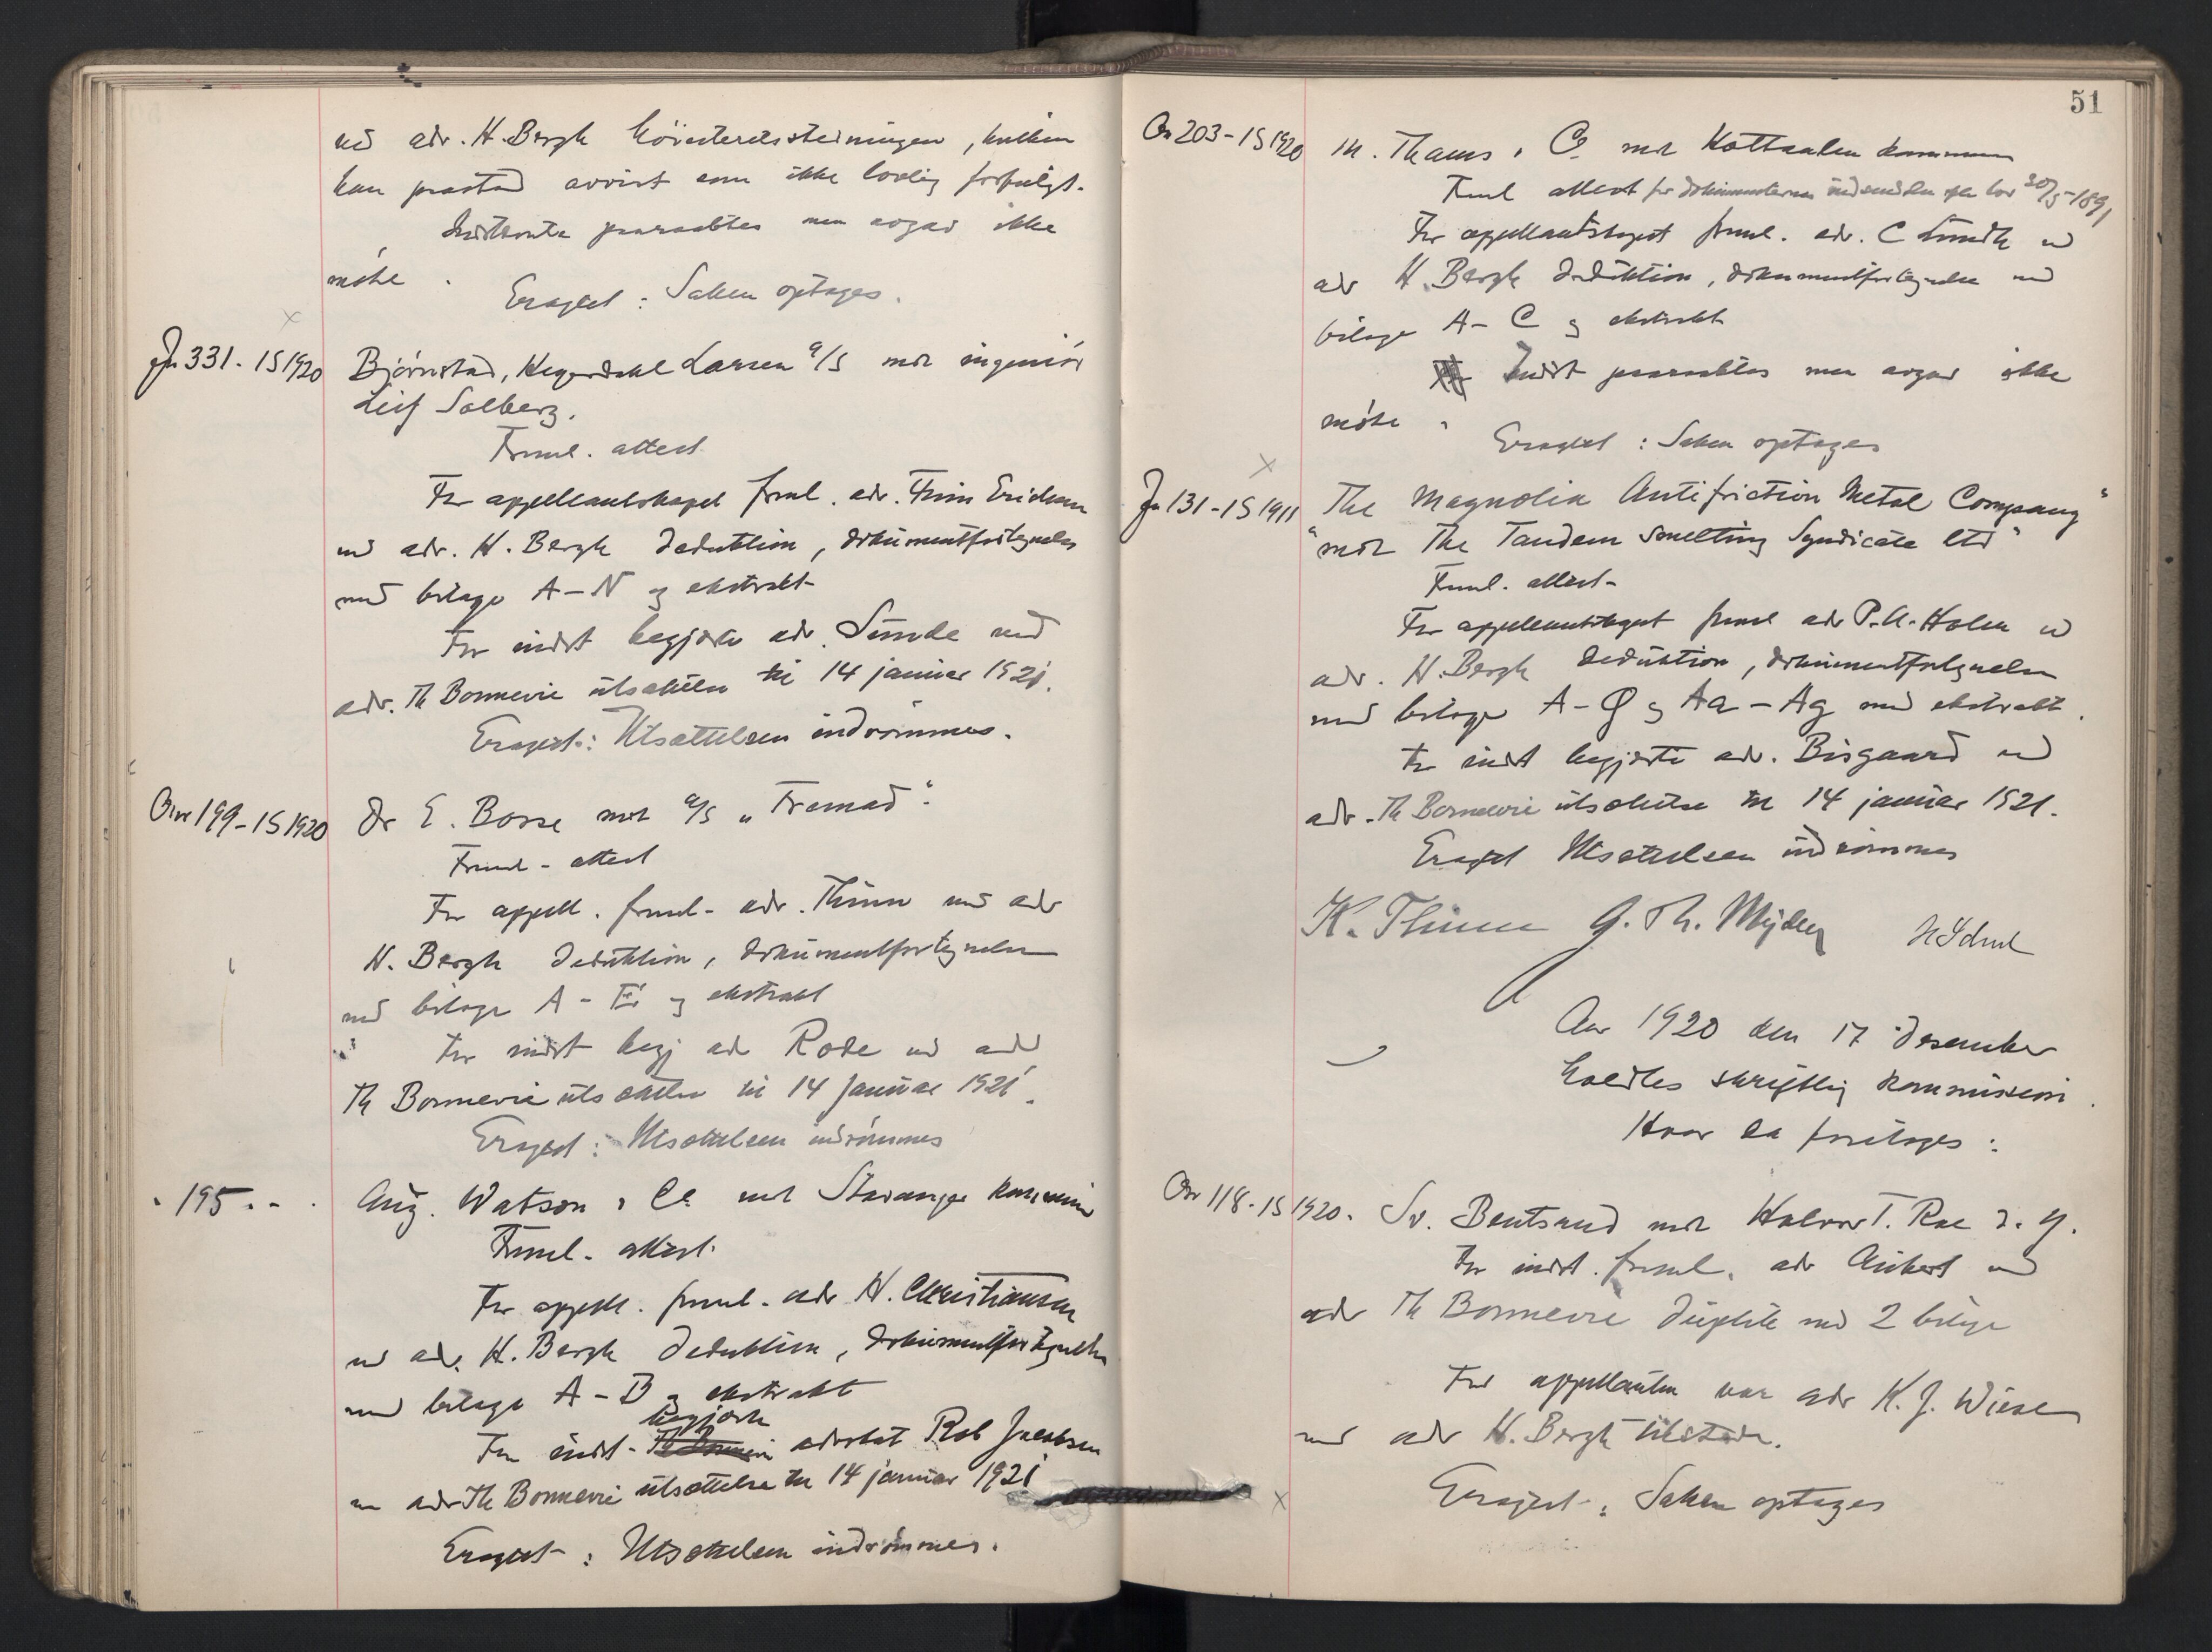 ved adv. H. Bergh Höiesteretsstevningen, hvilken
han paastod avvist som ikke lovlig forfulgt.
Indstevnte paaraabtes men avgav ikke
möte.
Eragtet: Saken optages.
Jn 331. 1S 1920
Björnstad, Hegerdahl Larsen a/s mot ingeniör
Leif Solberg.
Freml. attest
For appellantskapet freml. adv. Finn Erichsen
ved adv. H. Bergh deduktion, dokumentfortegnelse
med bilage A-N og ekstrakt
For indst begjærte adv. Sunde ved
adv. Th Bonnevie utsættelse til 14 januar 1921.
Eragtet: Utsættelsen indrömmes.
On 199-1S 1920
Dr E. Bosse mot a/s "Fremad".
Freml. attest
For appell. freml. adv. Thinn ved adv
H. Bergh deduktion, dokumentfortegnelse
med bilage A-E og ekstrakt
For indst begj adv Rode ved adv
Th Bonnevie utsættelse til 14 januar 1921.
Eragtet: Utsættelsen indrömmes
" 195. - .
Aug. Watson & Co mot Stavanger kommune
Freml. attest.
For appell. freml. adv H. Christiansen
ved adv. H. Bergh deduktion, dokumentfortegnelse
med bilage A-B og ekstrakt
begjærte
For indst. advokat Rob Jacobsen
ved adv Th Bonnevie utsættelse til 14 januar 1921
Eragtet: Utsættelsen indrömmes.
51
On 203-1S 1920
M. Thams & Co mot kommune
Freml attest for dokumenternes indsendelse efter lov 30/5-1891
For appellantskapet freml. adv. C Lundh ved
adv H. Bergh deduktion, dokumentfortegnelse med
bilage A-C og ekstrakt
Indst paaraabtes men avgav ikke
möte.
Eragtet: Saken optages
Jn 131-1S 1911
The Magnolia Antifriction Metal Company"
"mot The Tandem Smelting Syndicate Ltd"
Freml. attest.
For appellantskapet freml adv P. A. Holm ved
adv. H. Bergh deduktion, dokumentfortegnelse
med bilage A-Q og Aa-Ag med ekstrakt.
For indst begjærte adv. Bisgaard ved
adv. Th Bonnevie utsættelse til 14 januar 1921.
Eragtet Utsættelsen indrömmes
K. Thinn G. Th. Mejdell
Aar 1920 den 17 desember
holdtes skriftlig kommission.
Hvor da foretoges:
On 118-1S 1920.
Sv. Bentsrud mot Halvor T. Roe d. y.
For indst. freml. adv Aubert ved
adv Th Bonnevie duplik med 2 bilage
For appellanten var adv K. J. Wiese
ved adv H. Bergh tilstede.
Eragtet: Saken optages